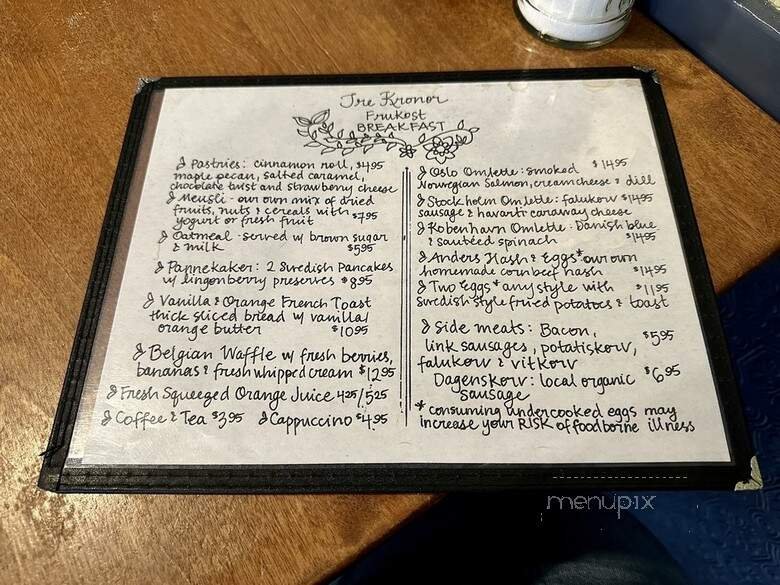 Tre Kronor
Frukost
BREAKFAST
Pastries: cinnamon roll, $4.95
maple pecan, salted caramel,
chocolate twist and strawberry cheese
Meusli - our own mix of dried
fruits, nuts & cereals with
yogurt or fresh fruit $7.95
Oatmeal - served w/ brown sugar
& milk $5.95
Pannekaker: 2 Swedish Pancakes
w/ lingonberry preserves $8.95
Vanilla & Orange French Toast
thick sliced bread w/ vanilla/
orange butter $10.95
Belgian Waffle w/ fresh berries,
bananas & fresh whipped cream $12.95
Fresh Squeezed Orange Juice 4.25/5.25
Coffee & Tea $3.95 Cappuccino $4.95
Oslo Omlette: smoked $14.95
Norwegian Salmon, cream cheese & dill
Stockholm Omlette: falukorv $14.95
sausage & havarti caraway cheese
Kobenhavn Omlette: Danish blue
& sautéed spinach $14.95
Anders Hash & Eggs* our own
homemade corn beef hash $14.95
Two eggs* any style with $11.95
Swedish style fried potatoes & toast
Side meats: Bacon, $5.95
link sausages, potatiskorv,
falukorv & vitkorv
Dagenskorv: local organic $6.95
sausage
* consuming undercooked eggs may
increase your RISK of foodborne illness
menupix